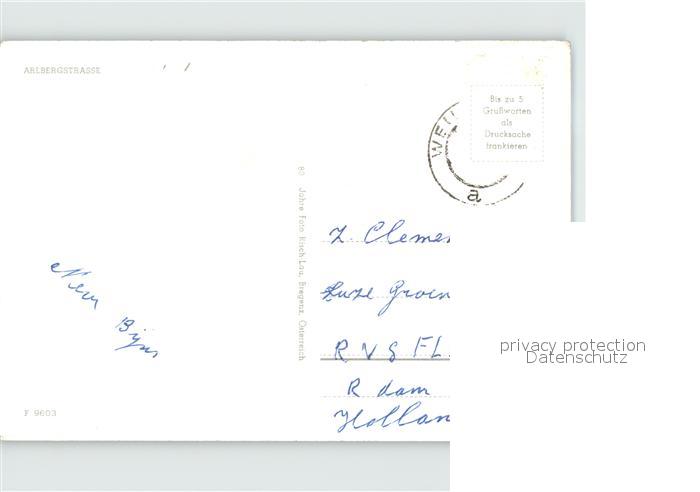 ARLBERGSTRASSE
Bis zu 5
Grußworten
als
Drucksache
frankieren
WEI
a
80 Jahre Foto Risch-Lau, Bregenz, Österreich
Z. Clemen
Groen
R V S FL.
R dam
Hollan
privacy protection
Datenschutz
F 9603